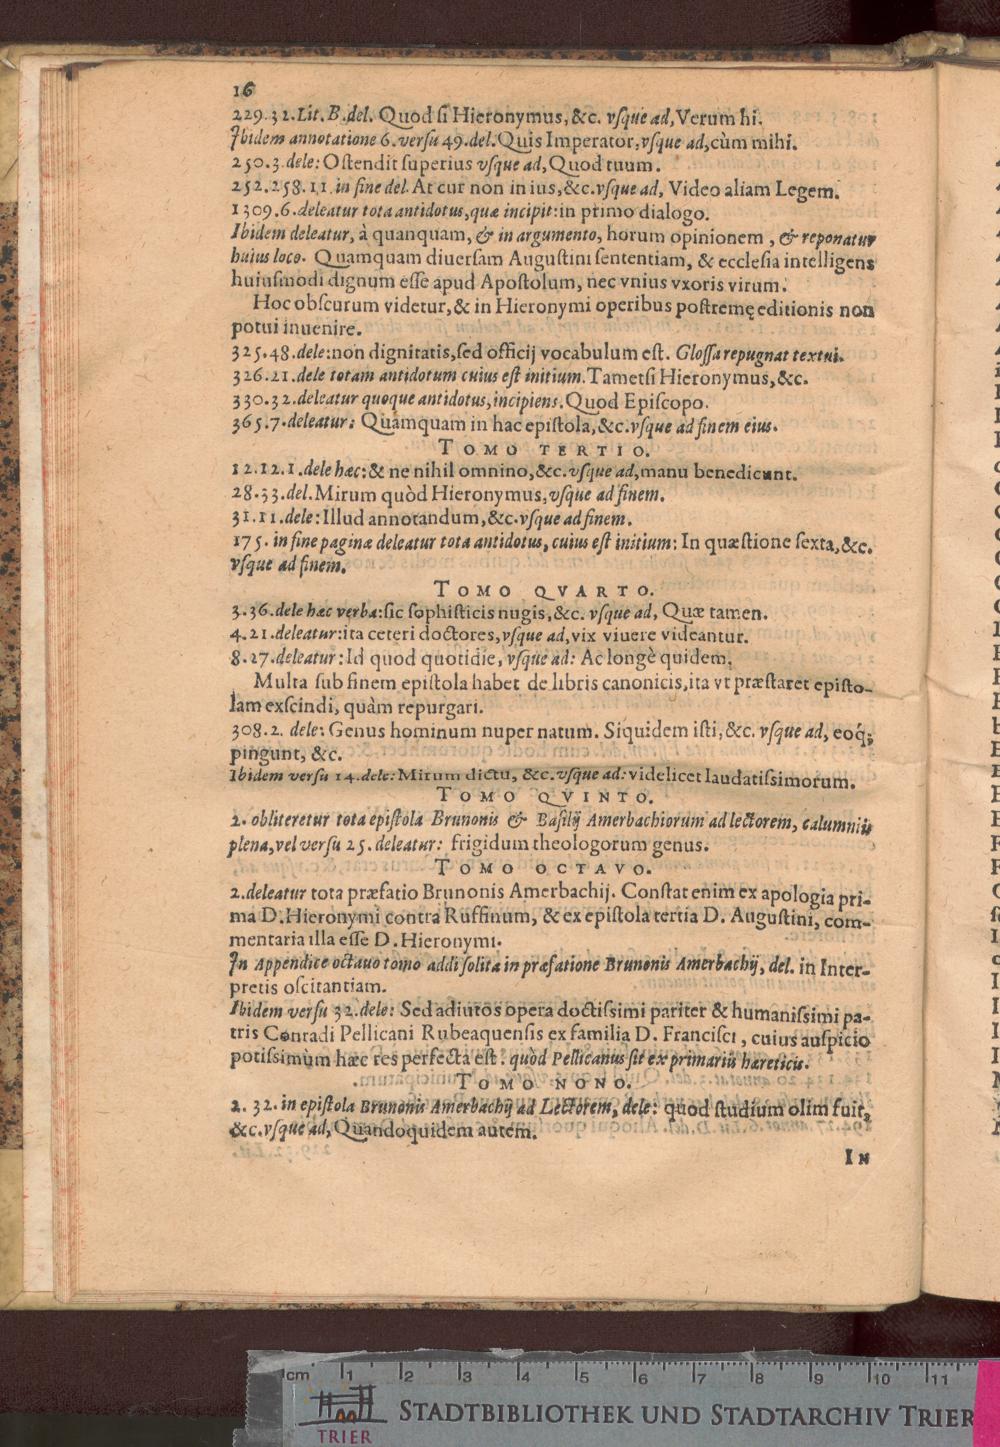 16
229.32.Lit.B.del. Quod si Hieronymus, &c. vsque ad, Verum hi.
Ibidem annotatione 6. versu 49. del. Quis Imperator, vsque ad, cùm mihi.
250.3. dele: Ostendit superius vsque ad, Quod tuum.
252.258.11. in fine del. At cur non in ius, &c. vsque ad, Video aliam Legem.
1309.6. deleatur tota antidotus, quæ incipit: in primo dialogo.
Ibidem deleatur, à quanquam, & in argumento, horum opinionem, & reponatur
huius loco. Quamquam diuersam Augustini sententiam, & ecclesia intelligens
huiusmodi dignum esse apud Apostolum, nec vnius vxoris virum.
Hoc obscurum videtur, & in Hieronymi operibus postremę editionis non
potui inuenire.
325.48. dele: non dignitatis, sed officij vocabulum est. Glossa repugnat textui.
326.21. dele totam antidotum cuius est initium. Tametsi Hieronymus, &c.
330.32. deleatur quoque antidotus, incipiens. Quod Episcopo.
365.7. deleatur: Quamquam in hac epistola, &c. vsque ad finem eius.
TOMO TERTIO.
12.12.1. dele hæc: & ne nihil omnino, &c. vsque ad, manu benedicunt.
28.33. del. Mirum quòd Hieronymus, vsque ad finem.
31.11. dele: Illud annotandum, &c. vsque ad finem.
175. in fine paginæ deleatur tota antidotus, cuius est initium: In quæstione sexta, &c.
vsque ad finem.
TOMO QVARTO.
3.36. dele hæc verba: sic sophisticis nugis, &c. vsque ad, Quæ tamen.
4.21. deleatur: ita ceteri doctores, vsque ad, vix viuere videantur.
8.27. deleatur: Id quod quotidie, vsque ad: Ac longè quidem.
Multa sub finem epistola habet de libris canonicis, ita vt præstaret episto-
lam exscindi, quàm repurgari.
308.2. dele: Genus hominum nuper natum. Siquidem isti, &c. vsque ad, eoq́;
pingunt, &c.
Ibidem versu 14. dele: Mirum dictu, &c. vsque ad: videlicet laudatissimorum.
TOMO QVINTO.
2. obliteretur tota epistola Brunonis & Basilij Amerbachiorum ad lectorem, calumniis
plena, vel versu 25. deleatur: frigidum theologorum genus.
TOMO OCTAVO.
2. deleatur tota præfatio Brunonis Amerbachij. Constat enim ex apologia pri-
ma D. Hieronymi contra Ruffinum, & ex epistola tertia D. Augustini, com-
mentaria illa esse D. Hieronymi.
In Appendice octauo tomo addi solita in præfatione Brunonis Amerbachij, del. in Inter-
pretis oscitantiam.
Ibidem versu 32. dele: Sed adiutos opera doctissimi pariter & humanissimi pa-
tris Conradi Pellicani Rubeaquensis ex familia D. Francisci, cuius auspicio
potissimùm hæc res perfecta est. quòd Pellicanus sit ex primariis hæreticis.
TOMO NONO.
2. 32. in epistola Brunonis Amerbachij ad Lectorem, dele: quod studium olim fuit,
&c. vsque ad, Quandoquidem autem.
IN
1cm 1 2 3 4 5 6 7 8 9 10 11
TRIER
STADTBIBLIOTHEK UND STADTARCHIV TRIER